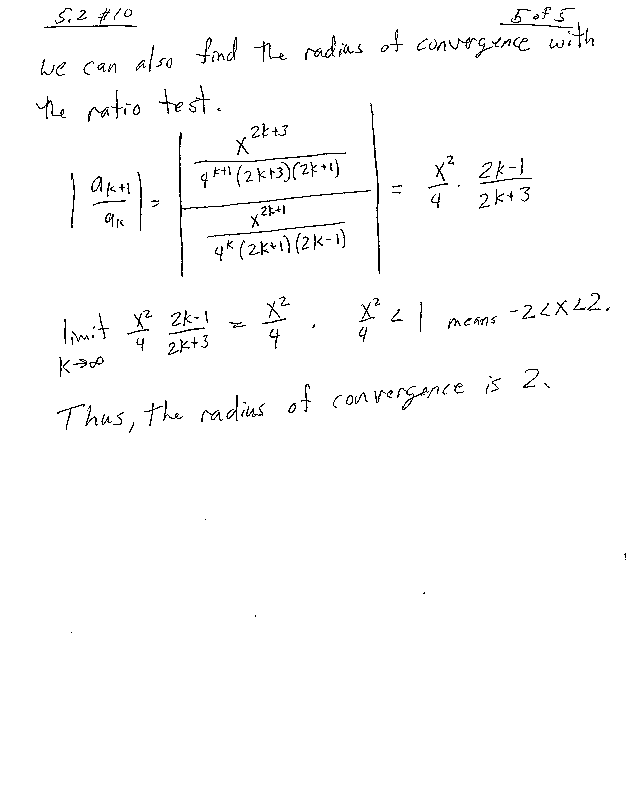 5.2 #10 5 of 5
We can also find the radius of convergence with
the ratio test.
|a_{k+1}/a_k| = |(x^{2k+3}/(4^{k+1}(2k+3)(2k+1)))/(x^{2k+1}/(4^k(2k+1)(2k-1)))| = x^2/4 · (2k-1)/(2k+3)
limit k→∞ x^2/4 (2k-1)/(2k+3) = x^2/4 . x^2/4 < 1 means -2<x<2.
Thus, the radius of convergence is 2.